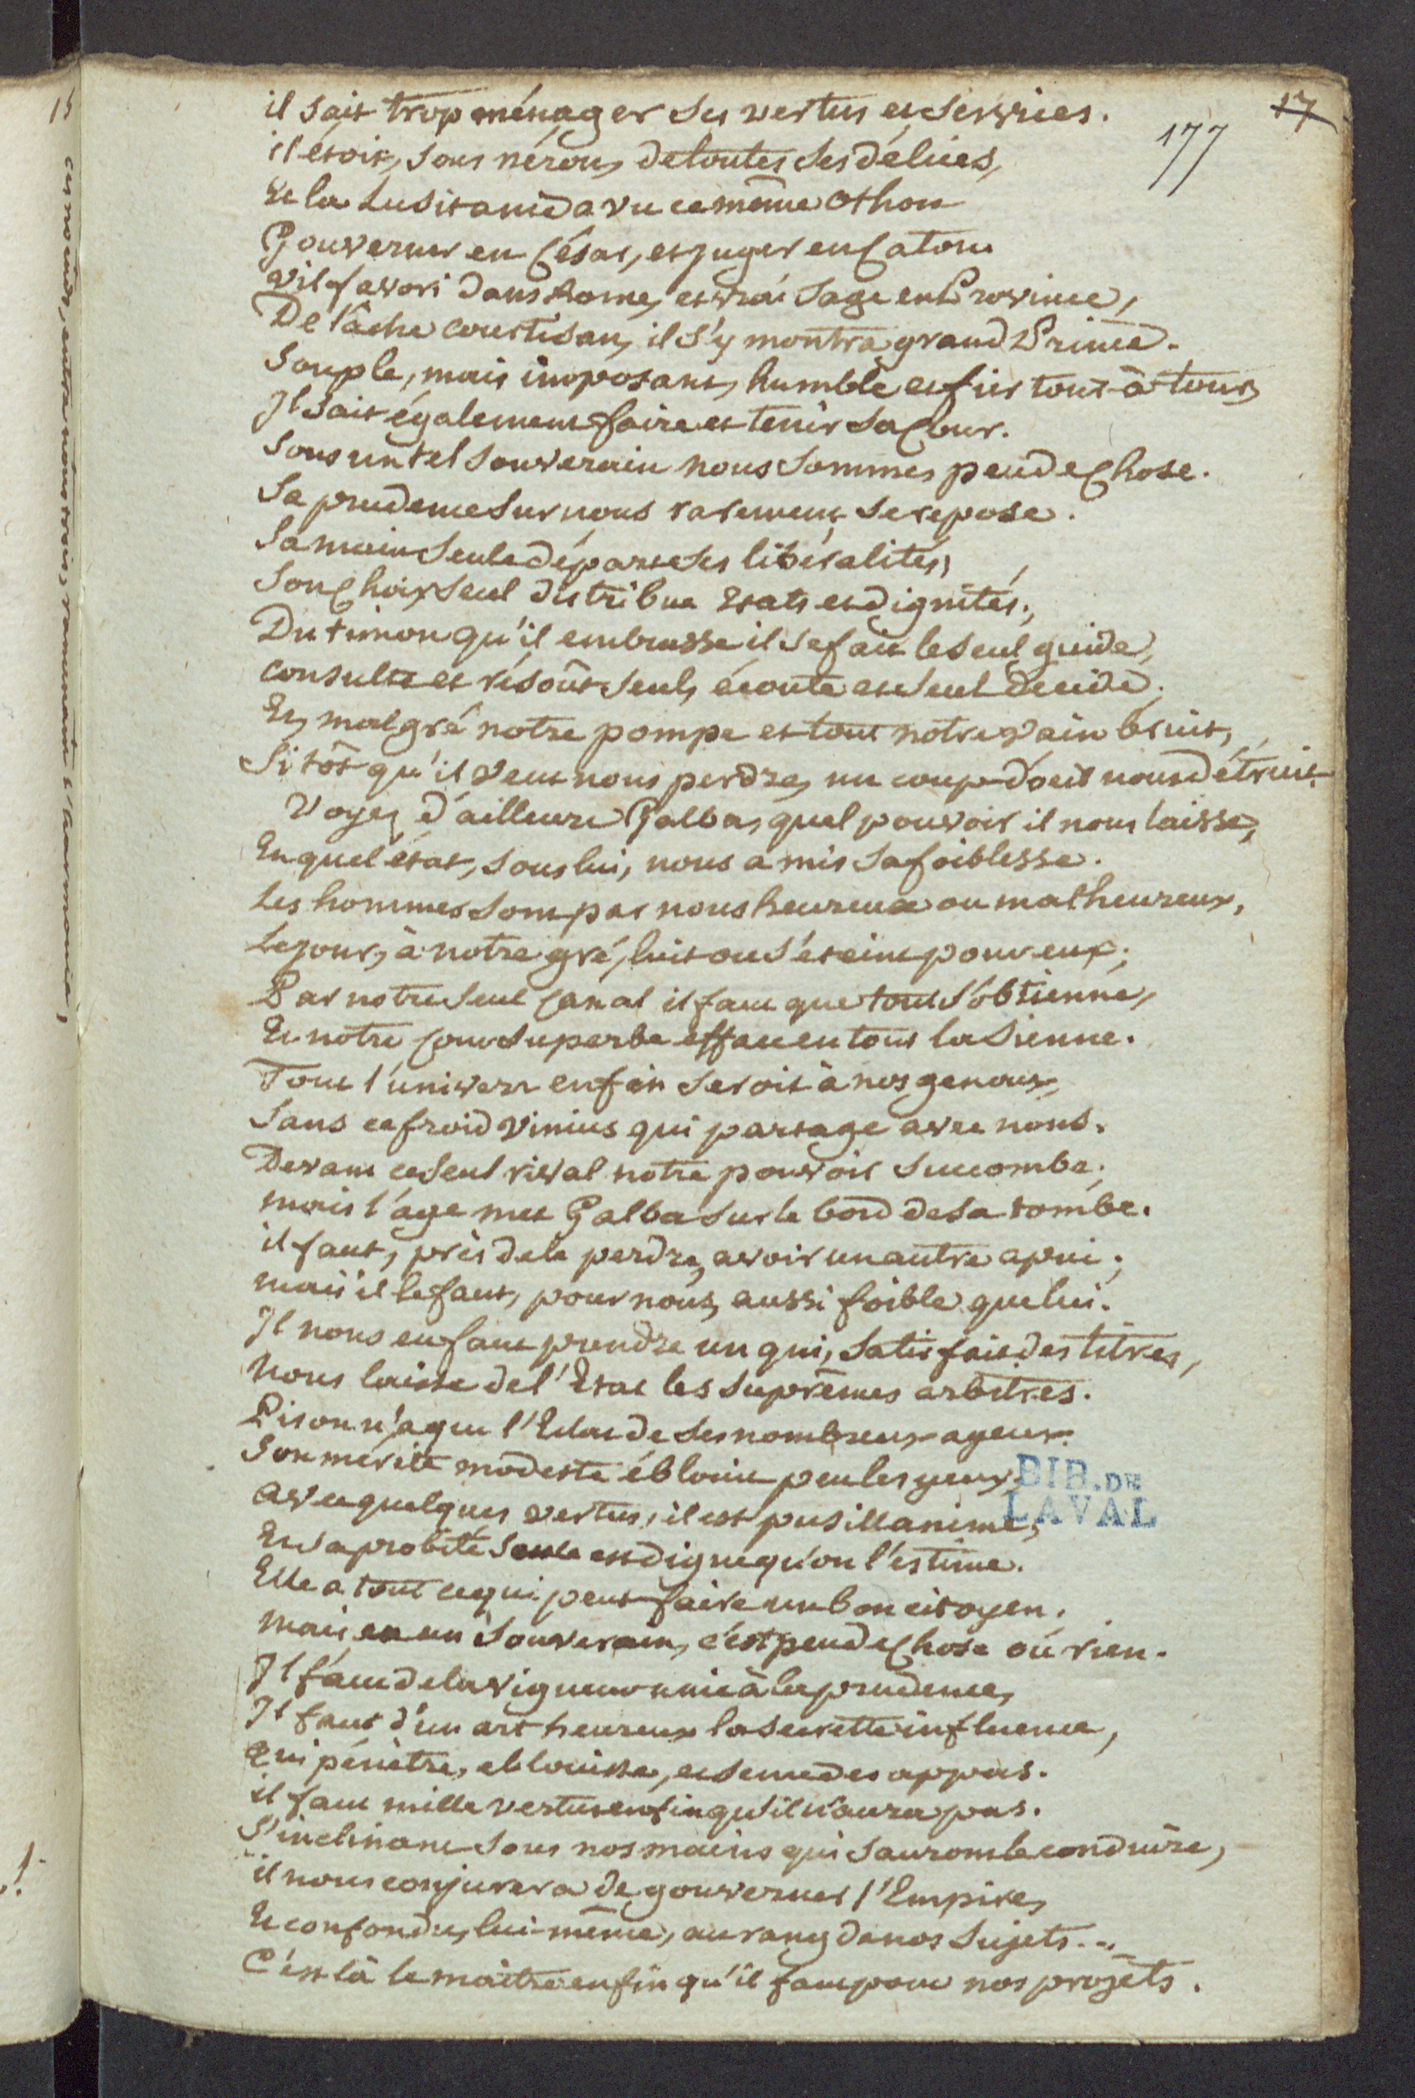 17
177
il sait trop ménager ses vertus et services.
il étoit, sous néron, de toutes ses délices,
Et la Lusitanie a vu ce même Othon
Gouverner en César, et juger en Caton.
vil favori dans Rome, et vrai sage en Province,
De lâche courtisan, il s'y montra grand Prince.
Souple, mais imposant, humble et fier tour-à-tour,
Il sait également faire et tenir sa Cour.
Sous un tel souverain nous sommes peu de Chose.
Sa prudence sur nous rarement se repose.
Sa main seule départ ses libéralités,
Son Choix seul distribue Etats et dignités;
Du timon qu'il embrasse il se fait le seul guide,
consulte et résoût seul, écoute et seul décide.
Et, malgré notre pompe et tout notre vain bruit,
Sitôt qu'il veut nous perdre, un coup d'oeil nous détruit.
Voyez d'ailleurs Galba, quel pouvoir il nous laisse,
En quel état, sous lui, nous a mis sa foiblesse.
Les hommes sont par nous heureux ou malheureux,
Le jour, à notre gré, luit ou s'éteint pour eux;
Par notre seul Canal il faut que tout s'obtienne,
Et notre Cour superbe efface en tout la sienne.
Tout l'univers enfin seroit à nos genoux,
Sans ce froid Vinius qui partage avec nous.
Devant ce seul rival notre pouvoir succombe;
mais l'âge met Galba sur le bord de sa tombe.
il faut, près de le perdre, avoir un autre apui;
mais il le faut, pour nous, aussi foible que lui.
Il nous en faut prendre un qui, satisfait des titres,
Nous laisse de l'Etat les suprêmes arbitres.
Pison n'a que l'Eclat de ses nombreux ayeux.
Son mérite modeste éblouit peu les yeux,
avec quelques vertus, il est pusillanime,
Et sa probité seule est digne qu'on l'estime.
Elle a tout ce qui peut faire un bon citoyen.
mais en un souverain, c'est peu de Chose ou rien.
Il faut de la vigueur unie à la prudence,
Il faut d'un art heureux la secrette influence,
Qui pénètre, eblouisse, et seme des appas.
il faut mille vertus enfin qu'il n'aura pas.
S'inclinant sous nos mains qui sauront le conduire,
il nous conjurera de gouverner l'Empire,
Et confondu, lui-même, au rang de nos sujets...
C'est là le maître enfin qu'il faut pour nos projets.
BIB. DE
LAVAL
15